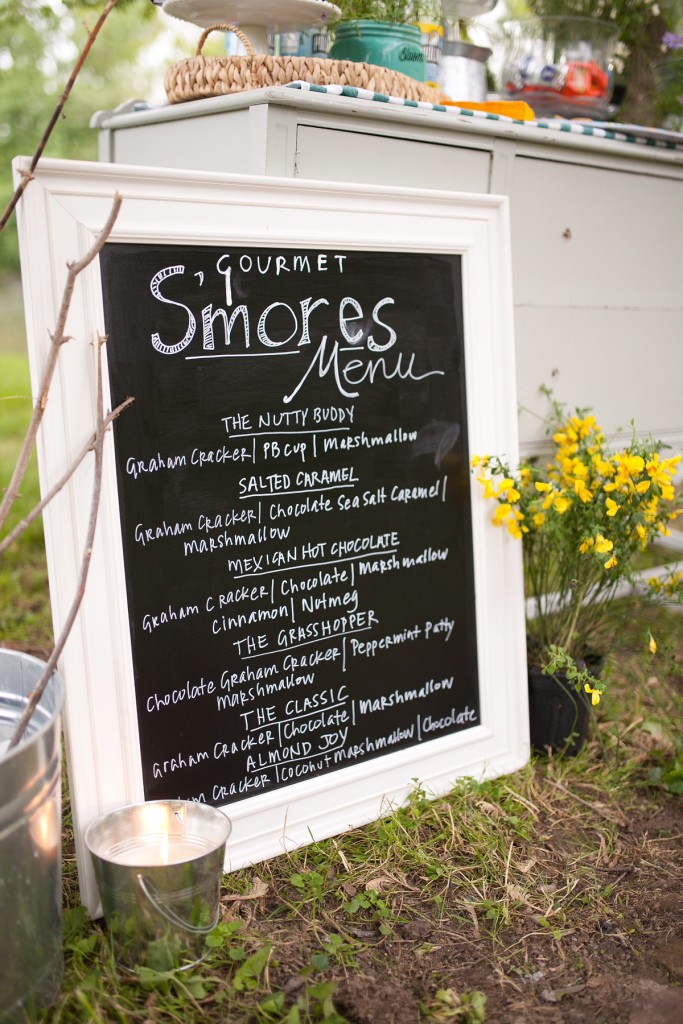 GOURMET
S'mores
Menu
THE NUTTY BUDDY
GRAHAM CRACKER | PB CUP | MARSHMALLOW
SALTED CARAMEL
GRAHAM CRACKER | CHOCOLATE SEA SALT CARAMEL |
MARSHMALLOW
MEXICAN HOT CHOCOLATE
GRAHAM CRACKER | CHOCOLATE | MARSHMALLOW
CINNAMON | NUTMEG
THE GRASSHOPPER
CHOCOLATE GRAHAM CRACKER | PEPPERMINT PATTY
MARSHMALLOW
THE CLASSIC
GRAHAM CRACKER | CHOCOLATE | MARSHMALLOW
ALMOND JOY
GRAHAM CRACKER | COCONUT MARSHMALLOW | CHOCOLATE